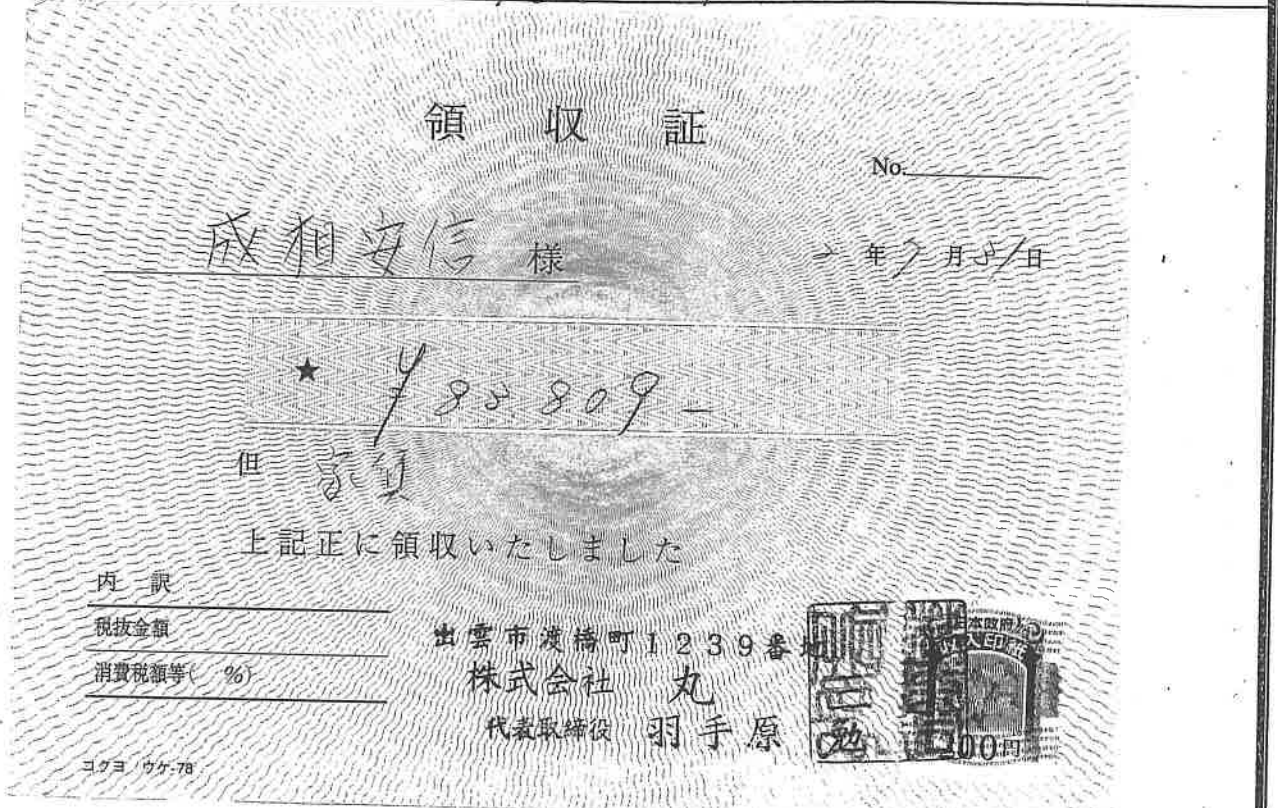 領収証
No.
成相安信 様
2年7月31日
★ ¥88.809-
但 家賃
上記正に領収いたしました
内訳
税抜金額
消費税額等( %)
出雲市渡橋町1239番地
株式会社 丸
代表取締役 羽手原 勉
日本政府
収入印紙
200円
コクヨ ウケ-78